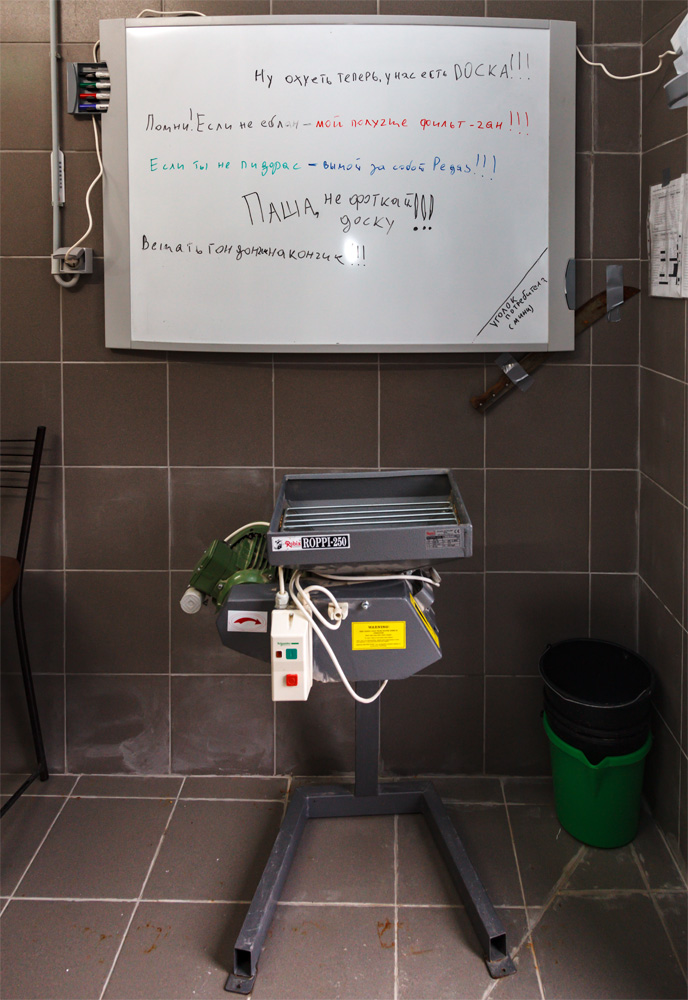 Ну охуеть теперь, у нас есть ДОСКА!!!
Помни! Если не еблан – мой получше фильт-чан!!!
Если ты не пидорас – вымой за собой Pegas!!!
ПАША, не фоткай
доску!!!
Вешать гондон на кончик!!!
уголок
потребителя
(мини)
Robix ROPPI-250
WARNING